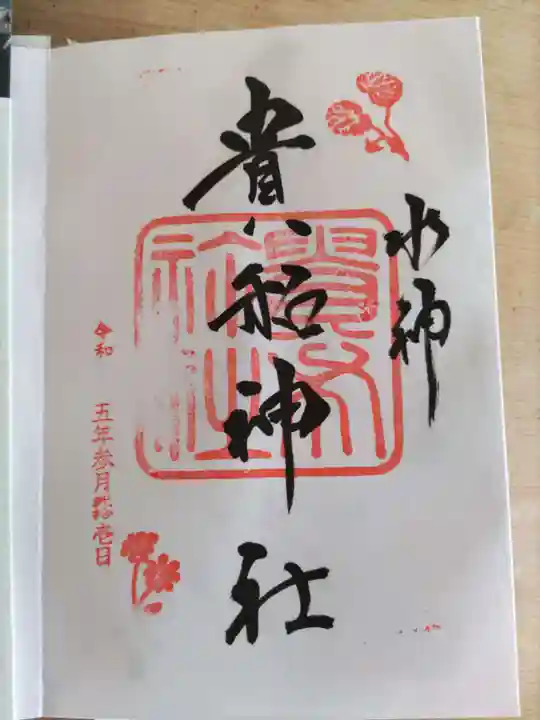 水神
貴船神社
令和 五年参月拾壱日